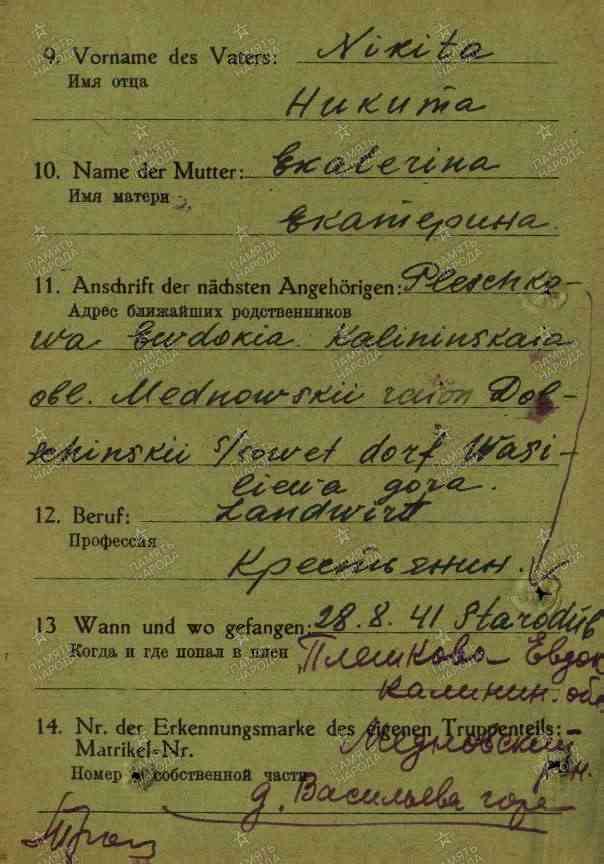 9. Vorname des Vaters: Nikita
Имя отца
Никита
10. Name der Mutter: Ekaterina
Имя матери
Екатерина.
11. Anschrift der nächsten Angehörigen: Pleschka-
Адрес ближайших родственников
wa Ewdokia. Kalininskaia
obl. Mednowskii raion Dob-
schinskii s/sowet dorf Wasi-
liewa gora.
12. Beruf: Landwirt
Профессия
Крестьянин.
13 Wann und wo gefangen: 28.8.41 Starodub
Когда и где попал в плен Плешкова Евдок
Калинин. обл
14. Nr. der Erkennungsmarke des eigenen Truppenteils:
Медновский
Matrikel-Nr.
р-он.
Номер собственной части
д. Васильева гора
ПАМЯТЬ НАРОДА